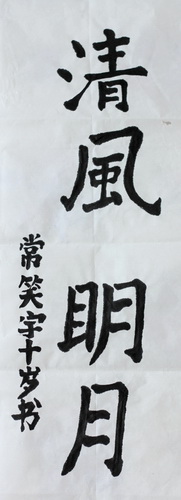 清風明月
常笑宇十岁书